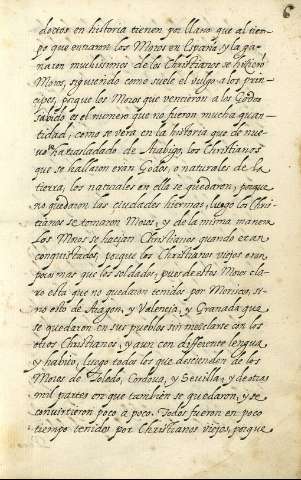 6
doctos en historia tienen por llano que al tiem
po que entraron los Moros en España, y la ga
naron muchissimos de los Christianos se hiziero
Moros, siguiendo como suele el vulgo a los prin
cipes, porque los Moros que vencieron a los Godos
sabido es el numero que no fueron mucha quan
tidad, como se vera en la historia que de nue
vo ha trasladado de Arabigo, los Christianos
que se hallaron eran Godos, o naturales de la
tierra, los naturales en ella se quedaron, porque
no quedaron las ciudades hiermas, luego los Chri
stianos se tornaron Moros, y de la misma manera
los Moros se hacian Christianos quando eran
conquistados, porque los Christianos viejos eran
poco mas que los soldados, pues destos Moros cla
ro esta que no quedaron tenidos por Moriscos, si
no esto de Aragon, y Valencia, y Granada que
se quedaron en sus pueblos sin mezclarse con los
otros Christianos, y aun con differente lengua
y habito, luego todos los que descienden de los
Moros de Toledo, Cordova, y Sevilla, y de otras
mil partes en que tambien se quedaron, y se
convirtieron poco a poco. Todos fueron en poco
tiempo tenidos por Christianos viejos, porque